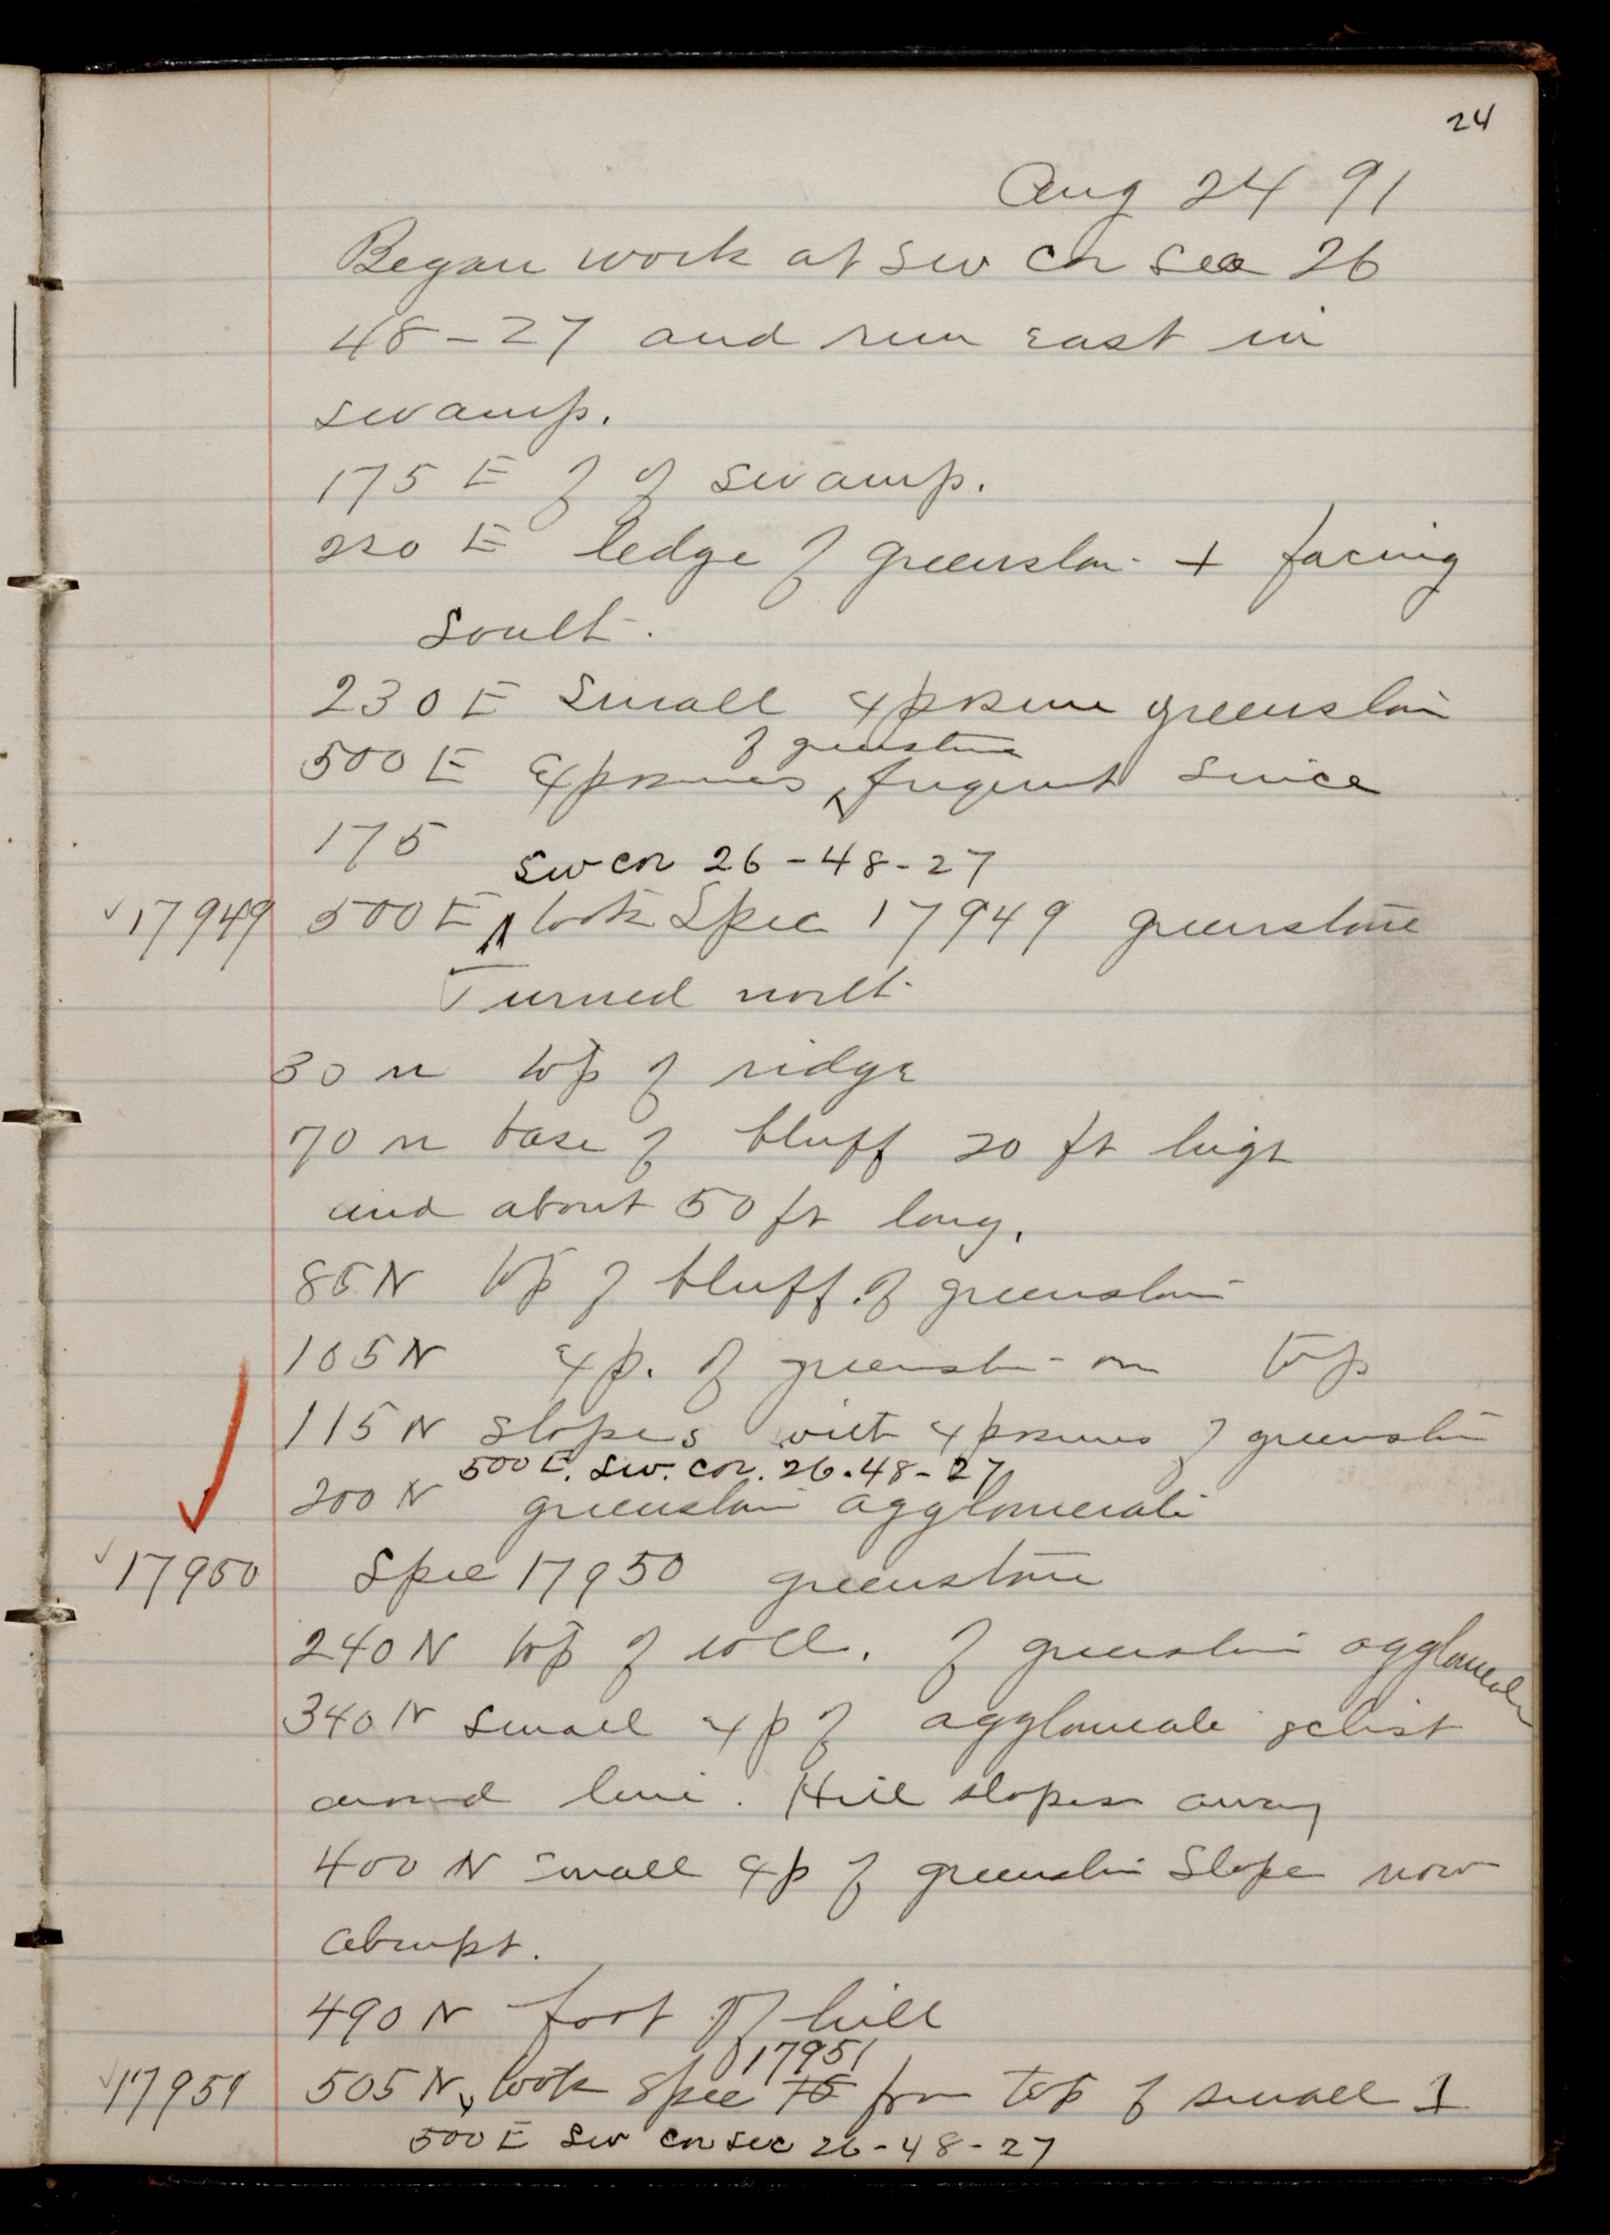 24
Aug 24 91
Began work at SW Cor Sec 26
48-27 and run east in
swamp.
175 E of swamp.
220 E ledge of greenstone + facing
South.
230 E Small exposure greenstone
of greenstone
500 E Exposures ^ frequent since
175
SW cor 26-48-27
17949 500 E ^ took Spec 17949 greenstone
Turned north
30 N top of ridge
70 N base of bluff 20 ft high
and about 50 ft long.
85 N top of bluff of greenstone
105 N exp. of greenstone on top
115 N slopes with exposures of greenstone
500 E. SW. Cor. 26-48-27
200 N greenstone agglomerate
17950 Spec 17950 greenstone
240 N top of roll. of greenstone agglomerate
340 N small exp of agglomerate schist
around line. Hill slopes away
400 N small exp of greenstone Slope now
abrupt.
490 N foot of hill
17951
17951 505 N took spec 15 from top of small
500 E SW Cor Sec 26-48-27